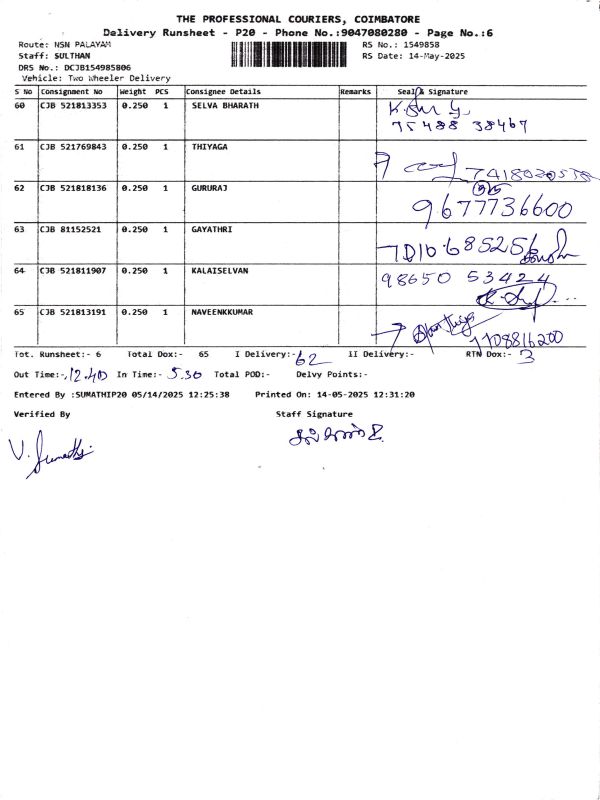 THE PROFESSIONAL COURIERS, COIMBATORE
Delivery Runsheet - P20 - Phone No.:9047080280 - Page No.:6
Route: NSN PALAYAM RS No.: 1549858
Staff: SULTHAN RS Date: 14-May-2025
DRS No.: DCJB154985806
Vehicle: Two Wheeler Delivery
S No Consignment No Weight PCS Consignee Details Remarks Seal & Signature
60 CJB 521813353 0.250 1 SELVA BHARATH
75488 38467
61 CJB 521769843 0.250 1 THIYAGA
62 CJB 521818136 0.250 1 GURURAJ
9677736600
63 CJB 81152521 0.250 1 GAYATHRI
64 CJB 521811907 0.250 1 KALAISELVAN 98650 53424
65 CJB 521813191 0.250 1 NAVEENKKUMAR
7708816200
Tot. Runsheet:- 6 Total Dox:- 65 I Delivery:- 62 II Delivery:- RTN Dox:- 3
Out Time:- 12.40 In Time:- 5.30 Total POD:- Delvy Points:-
Entered By :SUMATHIP20 05/14/2025 12:25:38 Printed On: 14-05-2025 12:31:20
Verified By Staff Signature
V. Sumathi